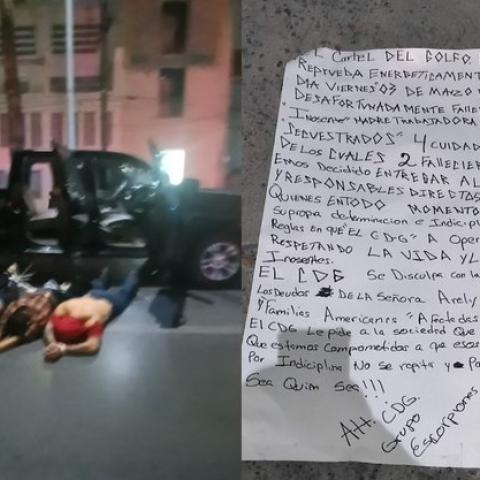 El Cartel DEL GOLFO,
REPRUEBA ENERGETICAMENT
DIA VIERNES "03 DE MARZO
DESAFORTUNADAMENTE FALLE
Inosente MADRE TRABAJADORA
SECUESTRADOS" 4 CUIDAD
DE LOS CUALES 2 FALLECIER
Emos Decidido ENTREGAR A L
Y RESPONSABLES DIRECTOS
QUIENES EN TODO MOMENTO
Su propa determinacion e Indicipl
Reglas en que "EL CDG" A Oper
RESPETANDO LA VIDA Y L
Inosentes.
EL CDG Se Disculpa con la
Los Deudos DE LA SEÑORA Arely
y Familias Americanas "Afectadas
El CDG Le pide a la sociedad Que
Que estamos Comprometidos a que esos
Por Indiciplina No se repita y Pa
Sea Quim Sea!!!
Att. CDG.
Grupo
Escorpiones